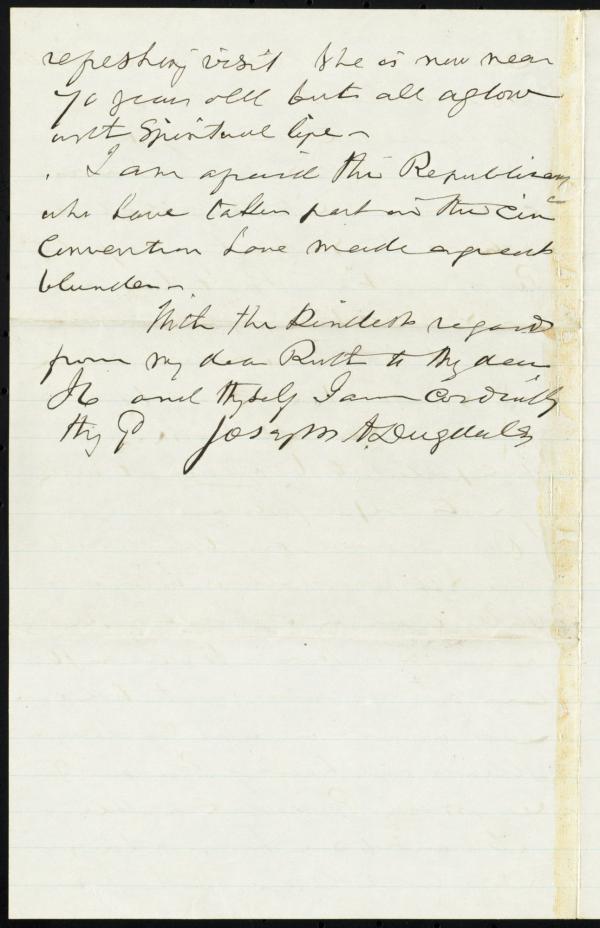 refreshing visit She is now near
70 years old but all aglow
with Spiritual life -
I am afraid the Republicans
who have taken part in the Cin
Convention have made a great
blunder -
With the kindest regard
from my dear Ruth to thy dear
H and thyself I am cordially
thy Joseph A. Dugdale